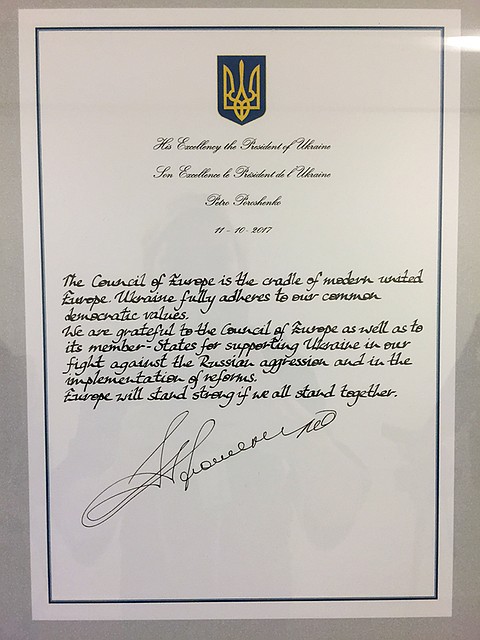 His Excellency the President of Ukraine
Son Excellence le Président de l'Ukraine
Petro Poroshenko
11 - 10 - 2017
The Council of Europe is the cradle of modern united
Europe. Ukraine fully adheres to our common
democratic values.
We are grateful to the Council of Europe as well as to
its member-States for supporting Ukraine in our
fight against the Russian aggression and in the
implementation of reforms.
Europe will stand strong if we all stand together.